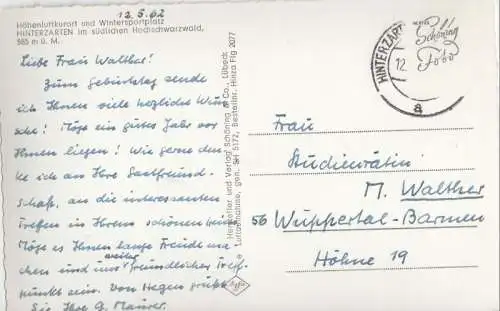 12.5.62
Höhenluftkurort und Wintersportplatz
HINTERZARTEN im südlichen Hochschwarzwald,
885 m ü. M.
Liebe Frau Walther!
Zum Geburtstag sende
ich Ihnen viele herzliche Wün-
sche! Möge ein gutes Jahr vor
Ihnen liegen! Wie gerne den-
ke ich an Ihre Gastfreund-
schaft, an die interessanten
Treffen in Ihrem schönen Heim
Möge es Ihnen lange Freude ma-
chen und uns weiter freundlicher Treff-
punkt sein. Von Herzen grüßt
Sie Ihre G. Maurer.
Hersteller und Verlag: Schöning & Co., Lübeck
Luftaufnahme, gen. SH 5172, Bestellnr. Hinza Flg 2077
Agfa
HINTERZART
12.
a
Schöning
Foto
Frau
Studienrätin
M. Walther
56 Wuppertal-Barmen
Höhne 19